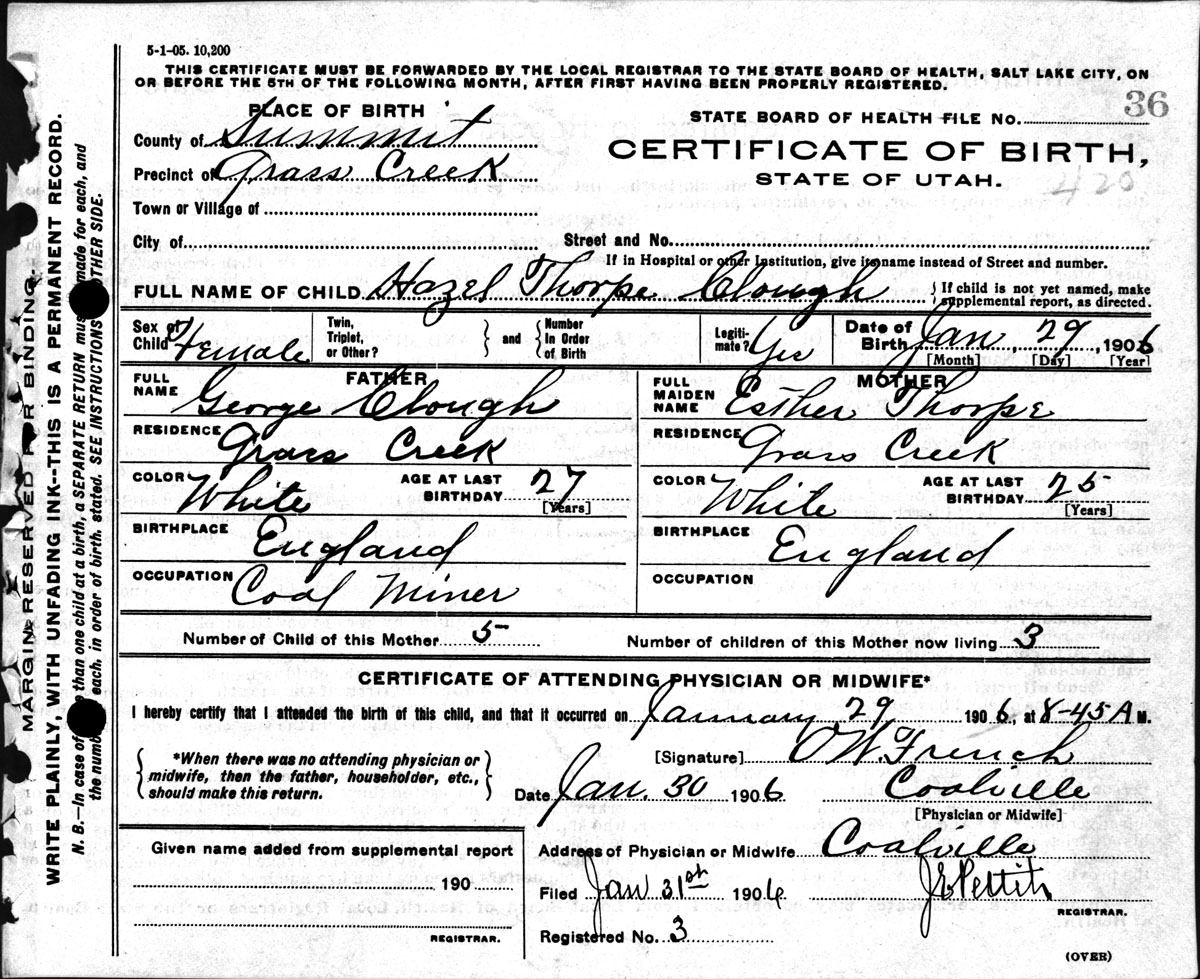 5-1-05. 10,200
THIS CERTIFICATE MUST BE FORWARDED BY THE LOCAL REGISTRAR TO THE STATE BOARD OF HEALTH, SALT LAKE CITY, ON
OR BEFORE THE 5TH OF THE FOLLOWING MONTH, AFTER FIRST HAVING BEEN PROPERLY REGISTERED.
36
PLACE OF BIRTH
STATE BOARD OF HEALTH FILE No.
County of Summit
CERTIFICATE OF BIRTH,
Precinct of Grass Creek
STATE OF UTAH.
420
Town or Village of
City of Street and No.
If in Hospital or other Institution, give its name instead of Street and number.
FULL NAME OF CHILD Hazel Thorpe Clough { If child is not yet named, make
supplemental report, as directed.
Sex of Child Female
Twin, Triplet, or Other? } and { Number In Order of Birth
Legitimate? Yes
Date of Birth Jan, 29, 1906
[Month] [Day] [Year]
FATHER
FULL NAME George Clough
RESIDENCE Grass Creek
COLOR White AGE AT LAST BIRTHDAY 27
[Years]
BIRTHPLACE England
OCCUPATION Coal Miner
MOTHER
FULL MAIDEN NAME Esther Thorpe
RESIDENCE Grass Creek
COLOR White AGE AT LAST BIRTHDAY 25
[Years]
BIRTHPLACE England
OCCUPATION
Number of Child of this Mother 5 Number of children of this Mother now living 3
CERTIFICATE OF ATTENDING PHYSICIAN OR MIDWIFE*
I hereby certify that I attended the birth of this child, and that it occurred on January 29 1906, at 8-45 A M.
{ *When there was no attending physician or
midwife, then the father, householder, etc.,
should make this return. }
[Signature] O W. French
Date Jan. 30 1906 Coalville
[Physician or Midwife]
Given name added from supplemental report
190
REGISTRAR.
Address of Physician or Midwife Coalville
Filed Jan 31st 1906 J E Pettit
REGISTRAR.
Registered No. 3
(OVER)
MARGIN RESERVED FOR BINDING.
WRITE PLAINLY, WITH UNFADING INK--THIS IS A PERMANENT RECORD.
N. B.—In case of than one child at a birth, a SEPARATE RETURN must made for each, and
the number each, in order of birth, stated. SEE INSTRUCTIONS OTHER SIDE.